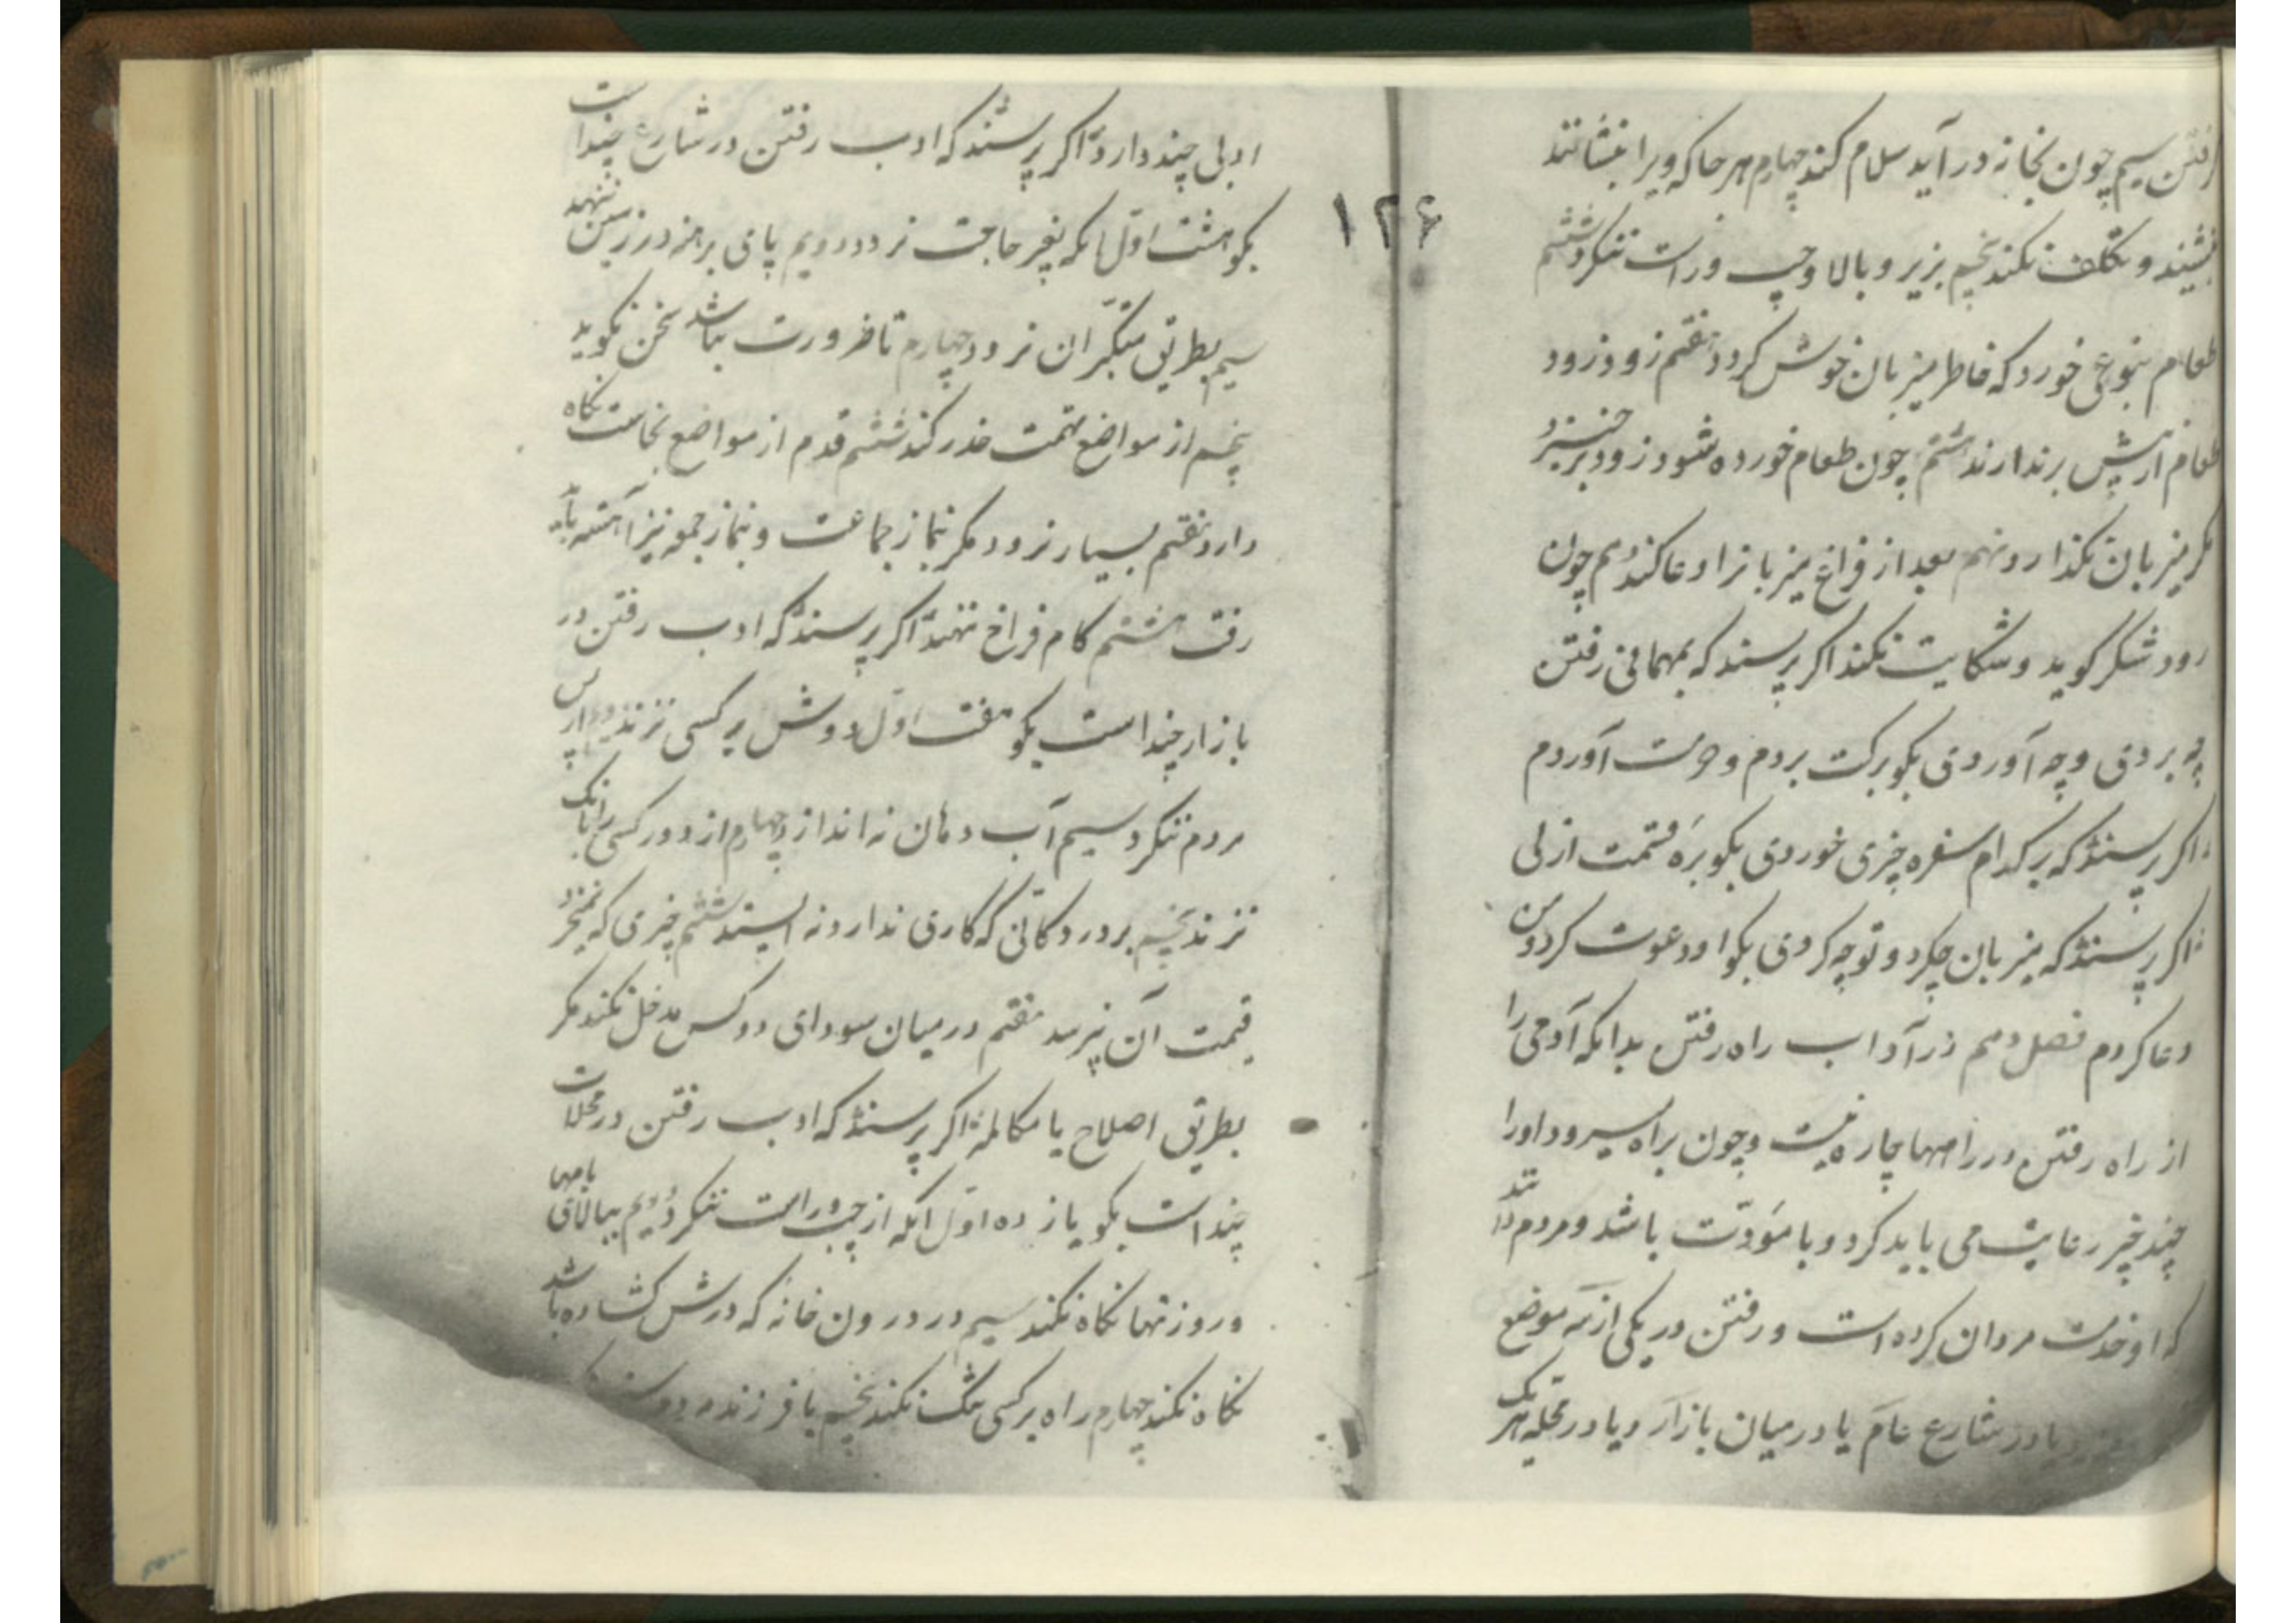 رفتن سیم چون بخانه در آید سلام کند چهارم هر جا که ویرا بنشانند
بنشیند و تکلف نکند پنجم بزیر و بالا و چپ و راست ننکرد ششم
طعام بنوعی خورد که خاطر میزبان خوش کردد هفتم زود زود
طعام از پیش برندارند هشتم چون طعام خورده شود زود برخیزد
مکر میزبان نکذارد نهم بعد از فراغ میزبانرا دعا کند دهم چون
رود شکر کوید و شکایت نکند اکر پرسند که بمهمانی رفتن
چه بردی و چه آوردی بکو برکت بردم و حرمت آوردم
اکر پرسند که بر کدام سفره چیزی خوردی بکو بره قسمت ازلی
اکر پرسند که میزبان چکرد و تو چه کردی بکو او دعوت کرد و من
دعا کردم فصل دهم در آداب راه رفتن بدانکه آدمی را
از راه رفتن در راهها چاره نیست و چون براه میرود او را
چند چیز رعایت می باید کرد و با مودت باشد و مردم دانند
که او خدمت مردان کرده است و رفتن در یکی از سه موضع
یا در شارع عام یا در میان بازار و یا در محله هر یک
۱۲۶
ادبی چند دارد اکر پرسند که ادب رفتن در شارع چند است
بکو هشت اول آنکه بغیر حاجت نرود دویم پای برهنه در زمین ننهد
سیم بطریق متکبران نرود چهارم تا ضرورت نباشد سخن نکوید
پنجم از مواضع تهمت حذر کند ششم قدم از مواضع نجاست نکاه
دارد هفتم بسیار نرود مکر بنماز جماعت و نماز جمعه نیز آهسته باید
رفت هشتم کام فراخ ننهد اکر پرسند که ادب رفتن در
بازار چند است بکو هفت اول دوش بر کسی نزند دویم از پس
مردم ننکرد سیم آب دهان نه اندازد چهارم از دور کسی را بانک
نزند پنجم بر در دکانی که کاری ندارد نه ایستد ششم چیزی که نمیخرد
قیمت آن نپرسد هفتم در میان سودای دو کس مدخل نکند مکر
بطریق اصلاح یا مکالمه اکر پرسند که ادب رفتن در محلات
چند است بکو یازده اول آنکه از چپ و راست ننکرد دویم ببالای بامها
و روزنها نکاه نکند سیم در درون خانه که درش کشاده باشد
نکاه نکند چهارم راه بر کسی تنک نکند پنجم با فرزند